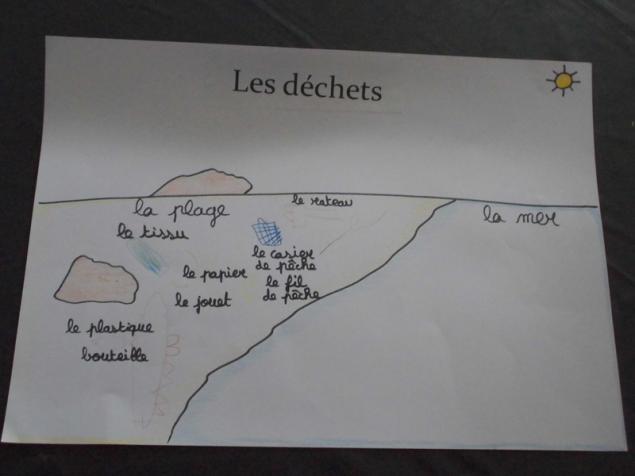 Les déchets
la plage
le rateau
la mer
le tissu
le casier
de pêche
le papier
le fil
de pêche
le jouet
le plastique
bouteille